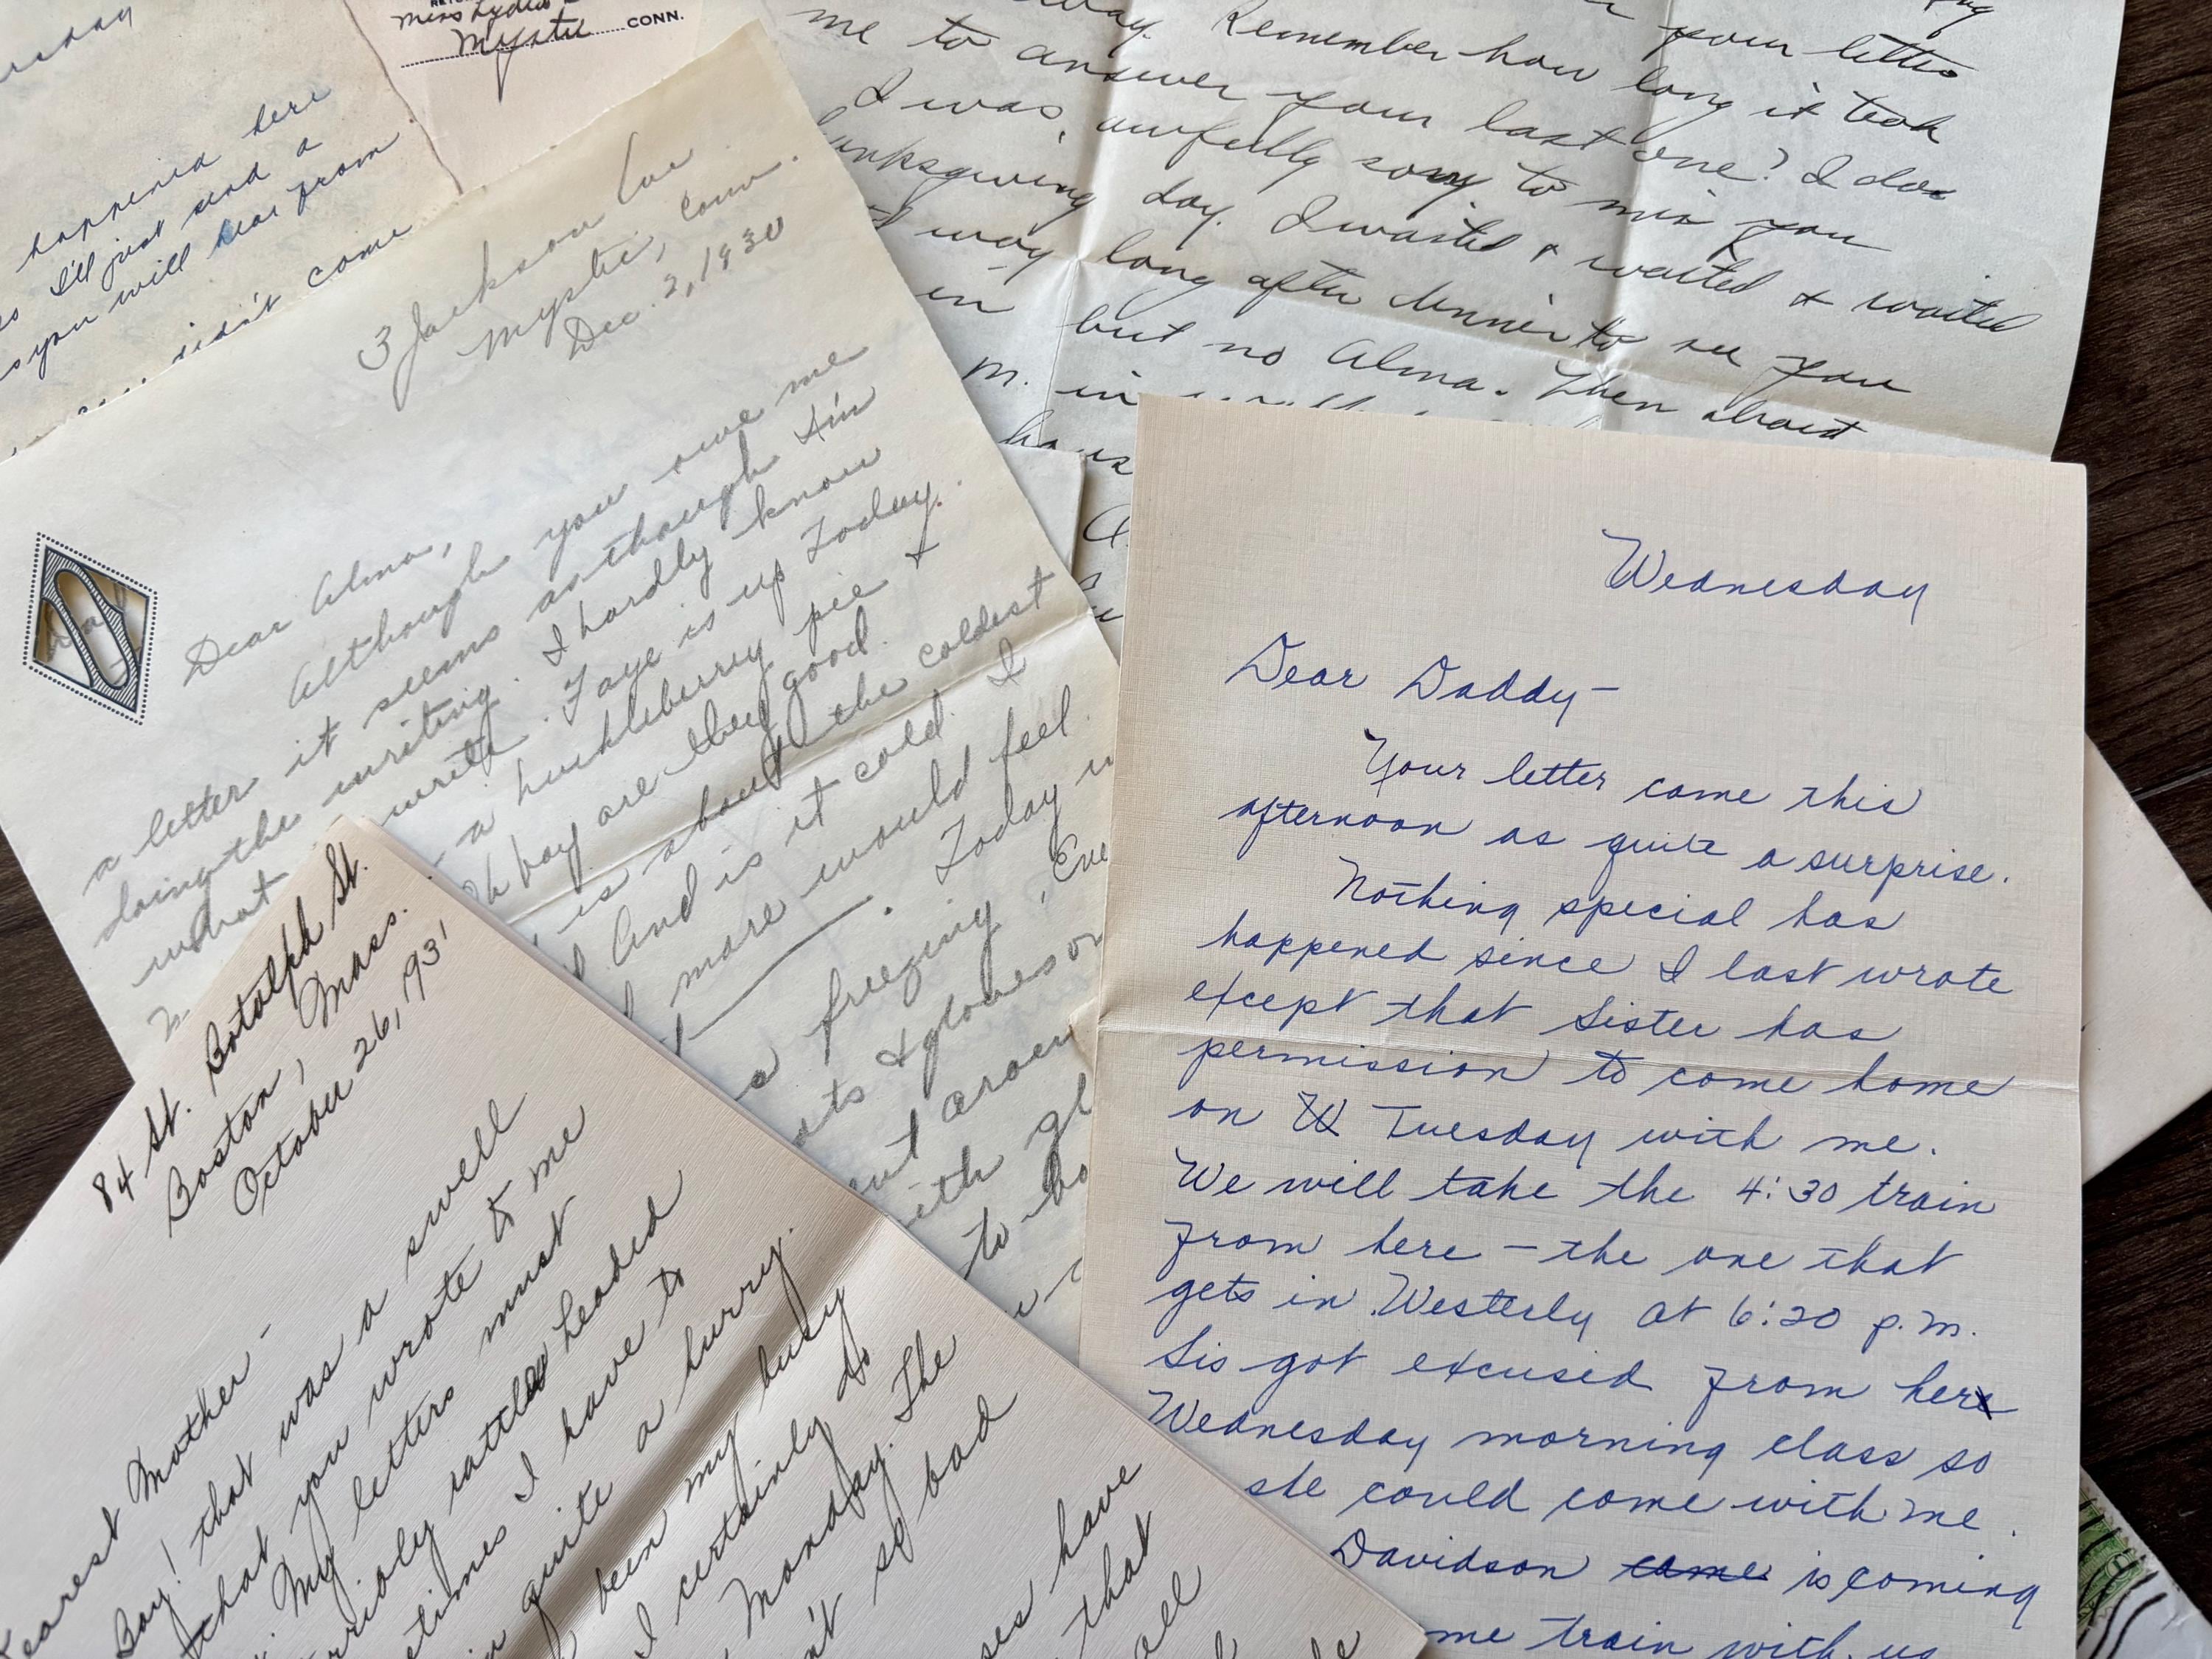 happened here
I'll just send a
you will hear from
didn't come
Miss Lydia
Mystic CONN.
way. Remember how long it took
me to answer your last one? I do
I was awfully sorry to miss you
day. I waited & waited & waited
way long after dinner to see you
in but no Alma. Then about
M. in
your letter
3 Jackson Ave
Mystic, Conn.
Dec. 2, 1930
Dear Alma,
Although you owe me
a letter it seems as though I'm
doing the writing. I hardly know
what write. Faye is up today.
a huckleberry pie &
Oh boy are they good.
is about the coldest
And is it cold. I
more would feel
Today
a freezing
& gloves on
84 St. Botolph St.
Boston, Mass.
October 26, 1931
Dearest Mother -
Boy! that was a swell
that you wrote to me
My letters must
rattled headed
I have to
quite a hurry.
been my busy
I certainly do
Monday. The
so bad
have
that
all
Wednesday
Dear Daddy -
Your letter came this
afternoon as quite a surprise.
Nothing special has
happened since I last wrote
except that Sister has
permission to come home
on W Tuesday with me.
We will take the 4:30 train
from here - the one that
gets in Westerly at 6:20 p.m.
Sis got excused from her
Wednesday morning class so
she could come with me.
Davidson came is coming
me train with us